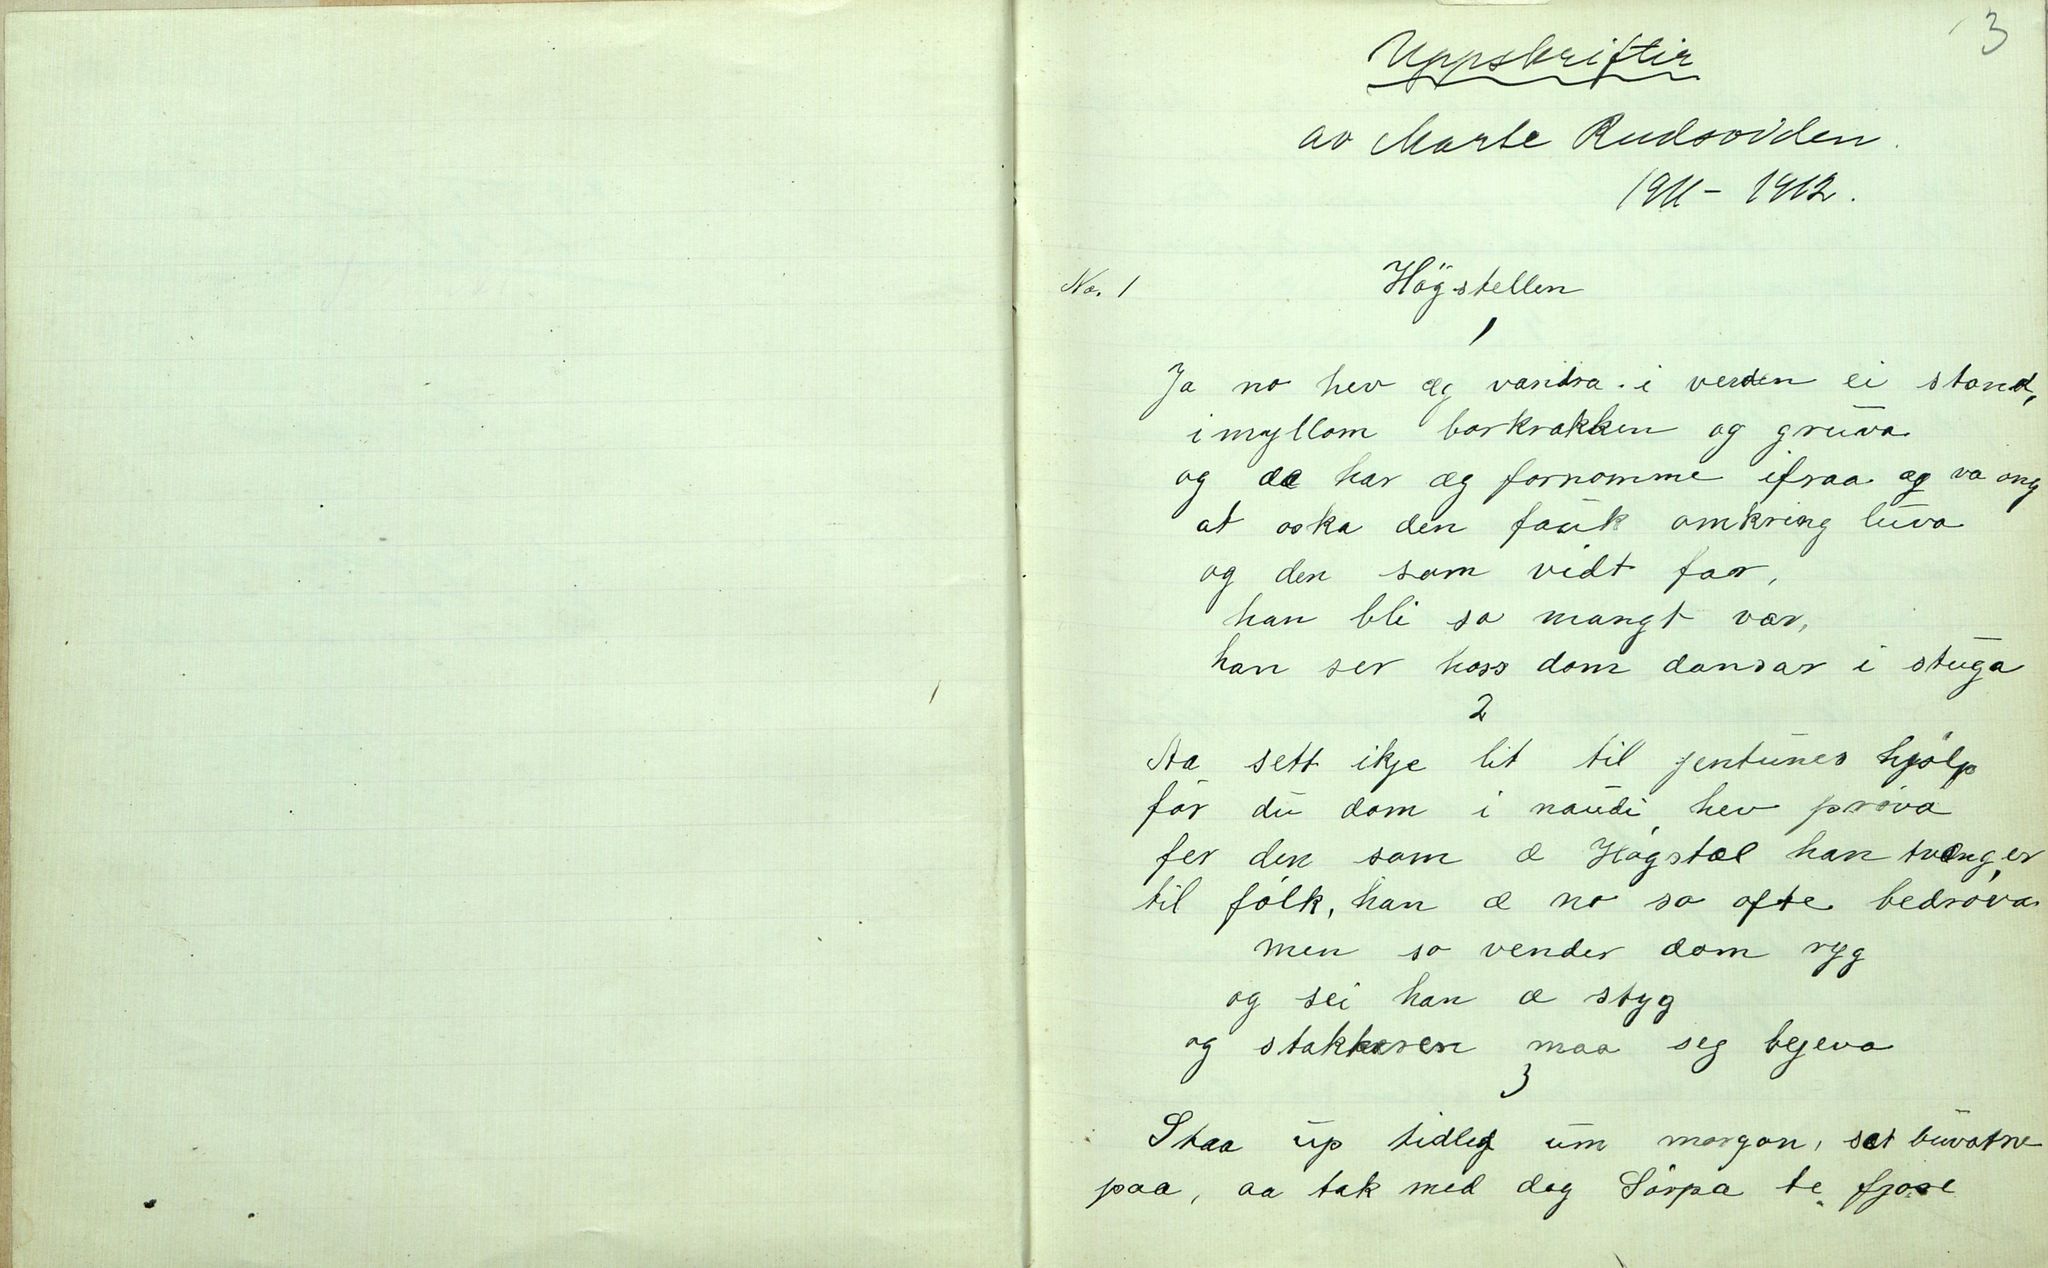 3
Uppskriftir
av Marte Rudsviden.
1911 - 1912.
No. 1 Högstellen
1
Ja no hev æg vandra i verden ei stond,
imyllom borkrakken og gruva
og dæ har æg fornomme ifraa æg va ong
at oska den fauk omkring luva
og den som vidt far,
han bli so mangt var,
han ser hoss dom dansar i stuga
2
Aa sett ikje lit til jentunes hjölp
för du dom i naudi hev pröva
fer den som æ Högstæl han tvænger
til fólk, han æ no so ofte bedröva
men so vender dom ryg
og sei han æ styg
og stakkaren maa seg bejeva
3
Staa up tidleg um morgon, sæt buvatne
paa, aa tak med dog Sörpa te fjose